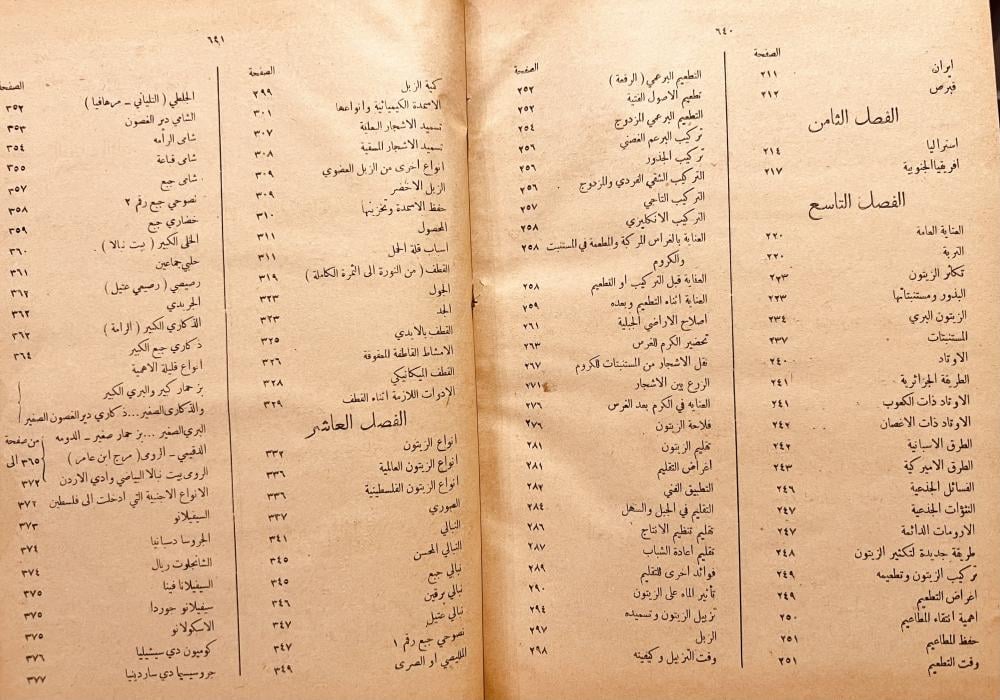 ٦٤٠
الصفحة
ايران ٢١١
قبرص ٢١٢
الفصل الثامن
استراليا ٢١٤
افريقيا الجنوبية ٢١٧
الفصل التاسع
العناية العامة ٢٢٠
التربة ٢٢٠
تكاثر الزيتون ٢٢٣
البذور ومستنبتاتها ٢٢٣
الزيتون البري ٢٣٤
المستنبتات ٢٣٧
الاوتاد ٢٤٠
الطريقة الجزائرية ٢٤١
الاوتاد ذات الكعوب ٢٤١
الاوتاد ذات الاغصان ٢٤٢
الطرق الاسبانية ٢٤٢
الطرق الاميركية ٢٤٣
الفسائل الجذعية ٢٤٦
النتؤات الجذعية ٢٤٧
الارومات الدائمة ٢٤٧
طريقة جديدة لتكثير الزيتون ٢٤٨
تركيب الزيتون وتطعيمه ٢٤٩
اغراض التطعيم ٢٤٩
اهمية انتقاء المطاعيم ٢٥٠
حفظ المطاعيم ٢٥١
وقت التطعيم ٢٥١
الصفحة
التطعيم البرعمي ( الرقعة ) ٢٥٢
تطعيم الاصول الفتية ٢٥٢
التطعيم البرعمي المزدوج ٢٥٤
تركيب البرعم الغصني ٢٥٦
تركيب الجذور ٢٥٦
التركيب الشقي الفردي والمزدوج ٢٥٦
التركيب التاجي ٢٥٧
التركيب الانكليزي ٢٥٨
العناية بالغراس المركبة والمطعمة في المستنبت ٢٥٨
والكروم
العناية قبل التركيب او التطعيم ٢٥٨
العناية اثناء التطعيم وبعده ٢٥٩
اصلاح الاراضي الجبلية ٢٦١
تحضير الكرم للغرس ٢٦٣
نقل الاشجار من المستنبتات للكروم ٢٦٧
الزرع بين الاشجار ٢٧١
العنايه في الكرم بعد الغرس ٢٧٦
فلاحة الزيتون ٢٧٦
تقليم الزيتون ٢٨١
اغراض التقليم ٢٨١
التطبيق الفني ٢٨٢
التقليم في الجبل والسهل ٢٨٤
تقليم تنظيم الانتاج ٢٨٦
تقليم اعادة الشباب ٢٨٧
فوائد اخرى للتقليم ٢٨٩
تأثير الماء على الزيتون ٢٩٠
تزبيل الزيتون وتسميده ٢٩٤
الزبل ٢٩٧
وقت التزبيل وكيفيته ٢٩٨
٦٤١
الصفحة
كمية الزبل ٢٩٩
الاسمدة الكيميائية وانواعها ٣٠١
تسميد الاشجار البعلة ٣٠٧
تسميد الاشجار المسقية ٣٠٨
انواع اخرى من الزبل العضوي ٣٠٩
الزبل الاخضر ٣٠٩
حفظ الاسمدة وتخزينها ٣١٠
المحصول ٣١١
اسباب قلة الحمل ٣١١
القطف ( من النورة الى الثمرة الكاملة ) ٣١٩
الجول ٣٢٣
الجد ٣٢٣
القطف بالايدي ٣٢٥
الامشاط القاطفة للمعقوفة ٣٢٦
القطف الميكانيكي ٣٢٨
الادوات اللازمة اثناء القطف ٣٢٩
الفصل العاشر
انواع الزيتون ٣٣٢
انواع الزيتون العالمية ٣٣٦
انواع الزيتون الفلسطينية ٣٣٦
الصوري ٣٣٧
النبالي ٣٤١
النبالي المحسن ٣٤٥
نبالي جبع ٣٤٥
نبالي برقين ٣٤٦
نبالي عتيل ٣٤٧
نصوحي جبع رقم ١ ٣٤٧
المليصي او الصرى ٣٤٩
الصفحة
الجلطي ( التلياني – مرهافيا ) ٣٥٢
الشامي دير الغصون ٣٥٣
شامى الرأمه ٣٥٤
شامى قباعة ٣٥٥
شامى جبع ٣٥٧
نصوحي جبع رقم ٢ ٣٥٨
خضاري جبع ٣٥٩
الخلى الكبير ( بيت نبالا ) ٣٦٠
حلبي جماعين ٣٦١
رصيصي ( رصيعي عتيل ) ٣٦٢
الجربدي ٣٦٢
الذكاري الكبير ( الرامة ) ٣٦٢
ذكاري جبع الكبير ٣٦٤
انواع قليلة الاهمية
بز حمار كبير والبري الكبير
والذكارى الصغير...ذكاري دير الغصون الصغير
البري الصغير ...بز حمار صغير – الدومه من صفحة
الدقيمي – الرومى ( مرج ابن عامر ) ٣٦٥ الى
الرومى بيت نبالا البياضي وادي الاردن ٣٧٢
الانواع الاجنبية التي ادخلت الى فلسطين ٣٧٢
السيفيلانو ٣٧٣
الجروسا دسبانيا ٣٧٤
الشانجلوت ريال ٣٧٤
السيفيلانا فينا ٣٧٥
سيفيلانو جوردا ٣٧٥
الاسكولانو ٣٧٥
كوميون دي سيشيليا ٣٧٦
جروسيسيما دي ساردينيا ٣٧٧